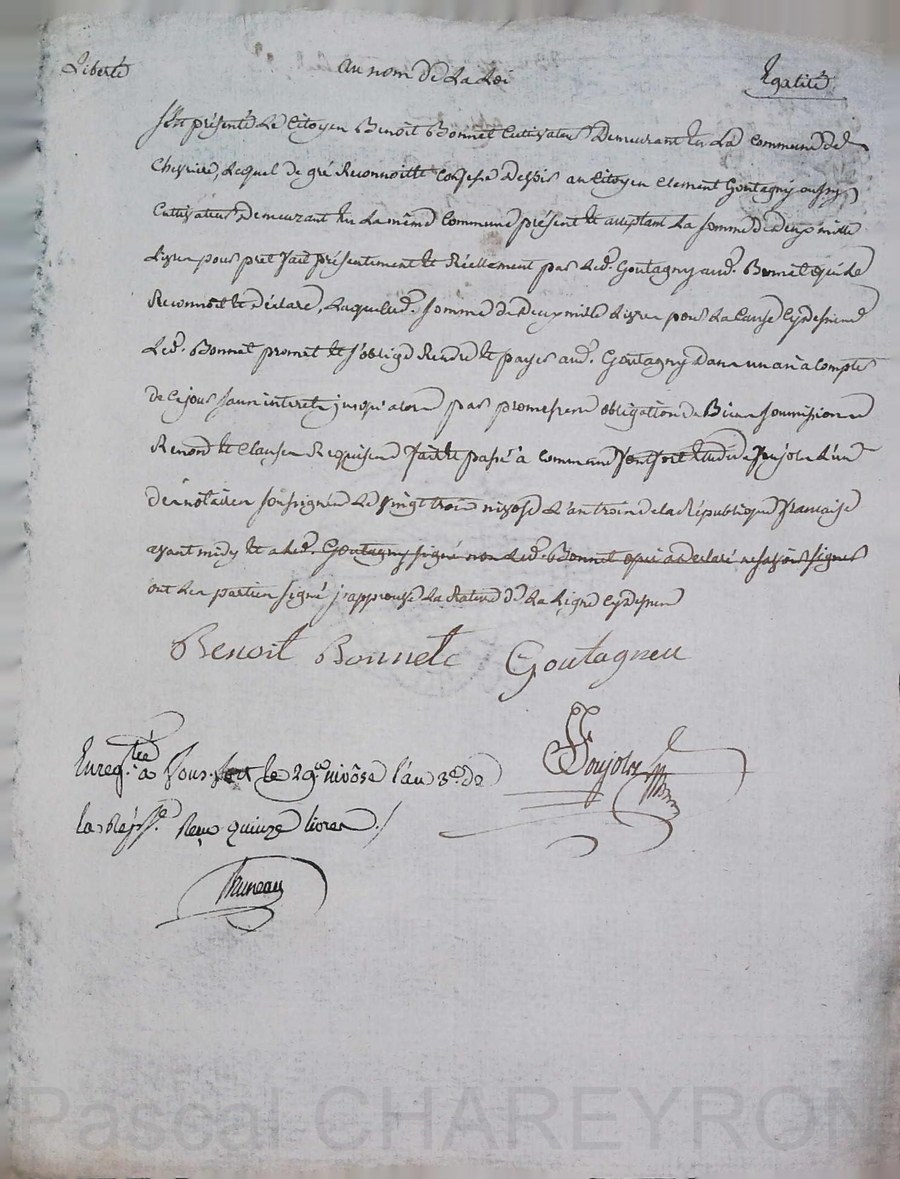 Liberté au nom de La Loi Egalité
S'est présenté Le Citoyen Benoit Bonnet Cultivateur Demeurant En La Commune de
Chevrieres, Lequel de gré Reconnoit et Confesse Devoir au Citoyen Clement Goutagny aussy
Cultivateur Demeurant En La même Commune présent et acceptant La somme de deux mille
Livres pour pret fait présentement et Réellement par Led. Goutagny aud. Bonnet qui Le
Reconnoit et Déclare, Laquelle d. Somme de Deux mille Livres pour La Cause Cydessus
Led. Bonnet promet et s'oblige Rendre et payer aud. Goutagny Dans un an à Compter
de Ce jour sans interets jusqu'alors par promesses obligation de Biens Soumissions
Renond et Clauses Requises fait et passé à Commune Etude de Joujolx L'un
des notaires Soussignés Le Vingt trois nivose L'an trois de la République française
avant midy et a Led. Goutagny signé non Led. Bonnet qui a declaré ne savoir signer
ont Les parties signé j'approuve La Rature de La Ligne Cydessus
Benoit Bonnet Goutagneu
Enreg.tré à le 29.e nivôse l'an 3.e de
Joujolx
la Rép.que Reçu quinze livres ./.
Bruneau
Pascal CHAREYRON